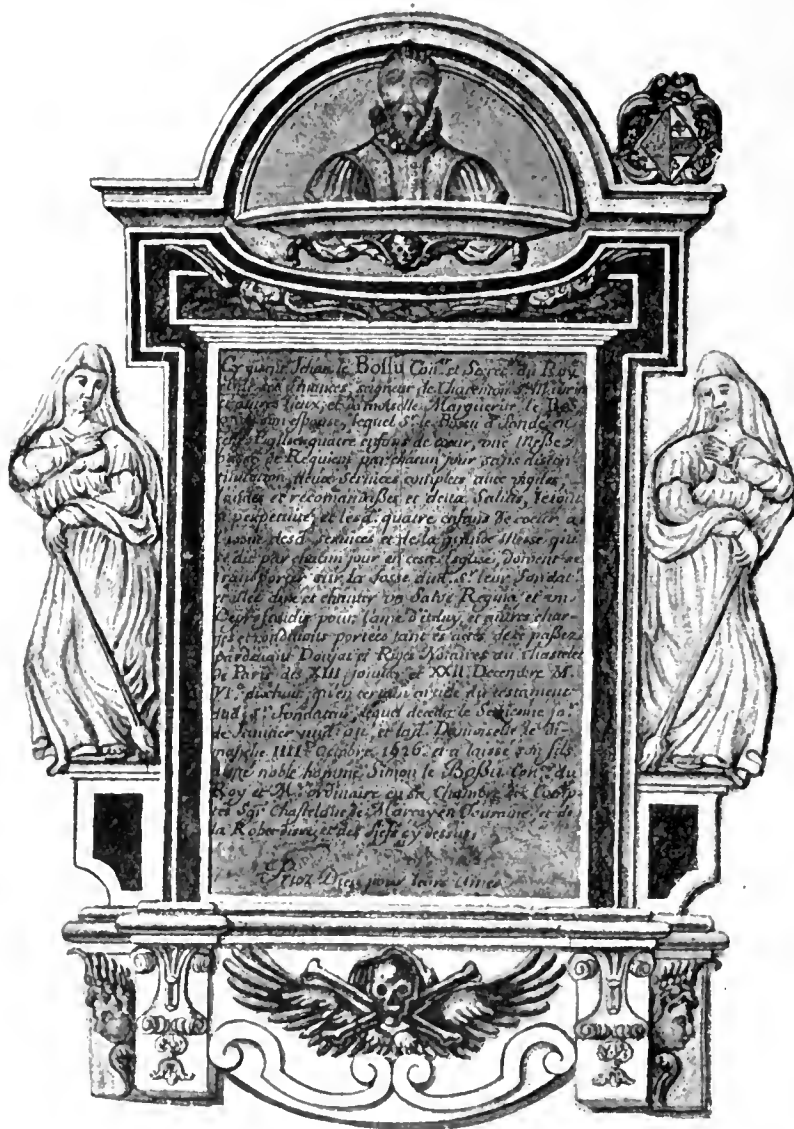 Cy gisent Jehan le Bossu Con.er et Secre.re du Roy
et de ses finances, seigneur de Charenton S.t Maurice
et autres lieux, et damoiselle Marguerite le
son espouse, lequel S.r le Bossu a fondé en
ceste Eglise quatre enfans de cœur, une Messe
basse de Requiem par chacun jour sans discon
tinuation, deux Services complets avec vigiles,
laudes et recomandisses et deux Saluts, le tout
a perpetuité, et lesd. quatre enfans de cœur a
l'issue desd. Services et de la grande Messe qui
se dit par chacun jour en ceste Esglise, doivent se
transporter sur la fosse dud. S.r leur fondat.r
et illec dire et chanter un Salve Regina et un
De profundis pour l'ame d'iceluy, et autres char
ges et conditions portées tant es actes de ce passez
pardevant Doujat et Notaires au Chastelet
de Paris des XIII et XXII Decembre M.
VI.c dixhuit, qu'en certain article du testament
dud. S.r Fondateur, lequel deceda le Se
de Janvier et lad. Damoiselle le
IIII.e Octobre, 1626. et a laissé son fils
noble homme Simon le Bossu Con.er du
Roy et M.e ordinaire en sa Chambre des Comp
tes Sgr Chastelain de Marray en Touraine, et de
la et des fiefs cy dessus,
Priez Dieu pour leurs Ames